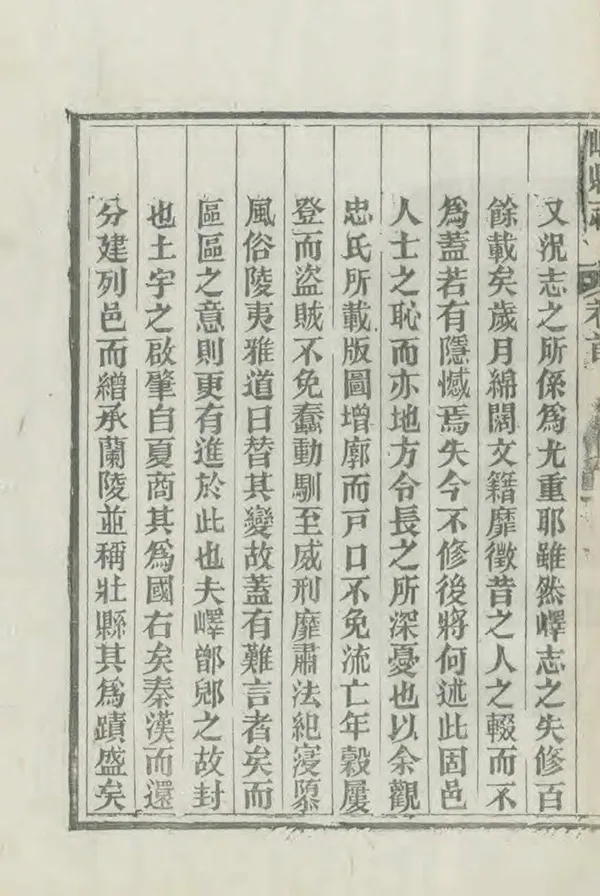 嶧縣志
卷首
又況志之所係為尤重耶雖然嶧志之失修百
餘載矣歲月綿闊文籍靡徵昔之人之輟而不
為蓋若有隱憾焉失今不修後將何述此固邑
人士之恥而亦地方令長之所深憂也以余觀
忠氏所載版圖增廓而戸口不免流亡年穀屢
登而盜賊不免蠢動馴至威刑靡肅法紀寖隳
風俗陵夷雅道日替其變故蓋有難言者矣而
區區之意則更有進於此也夫嶧鄫郳之故封
也土宇之啟肇自夏商其為國右矣秦漢而還
分建列邑而繒承蘭陵並稱壯縣其為蹟盛矣